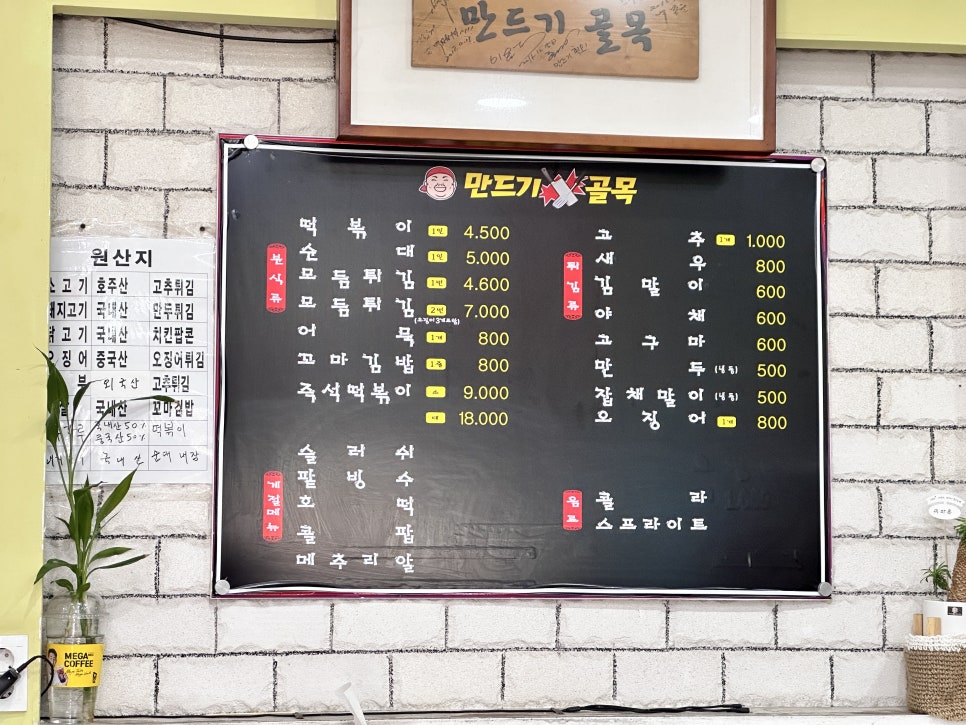 만드기 골목
만드기 골목
분식류
떡볶이 1인 4.500
순대 1인 5.000
모듬튀김 1인 4.600
모듬튀김 2인 7.000
(오징어3개포함)
어묵 1개 800
꼬마김밥 1줄 800
즉석떡볶이 소 9.000
대 18.000
튀김류
고추 1개 1.000
새우 800
김말이 600
야채 600
고구마 600
만두 (냉동) 500
잡채말이 (냉동) 500
오징어 1개 800
계절메뉴
슬러쉬
팥빙수
호떡
콜팝
메추리알
음료
콜라
스프라이트
원산지
소고기 호주산 고추튀김
돼지고기 국내산 만두튀김
닭고기 국내산 치킨팝콘
오징어 중국산 오징어튀김
외국산 고추튀김
국내산 꼬마김밥
국내산50% 중국산50% 떡볶이
국내산 순대 내장
MEGA COFFEE